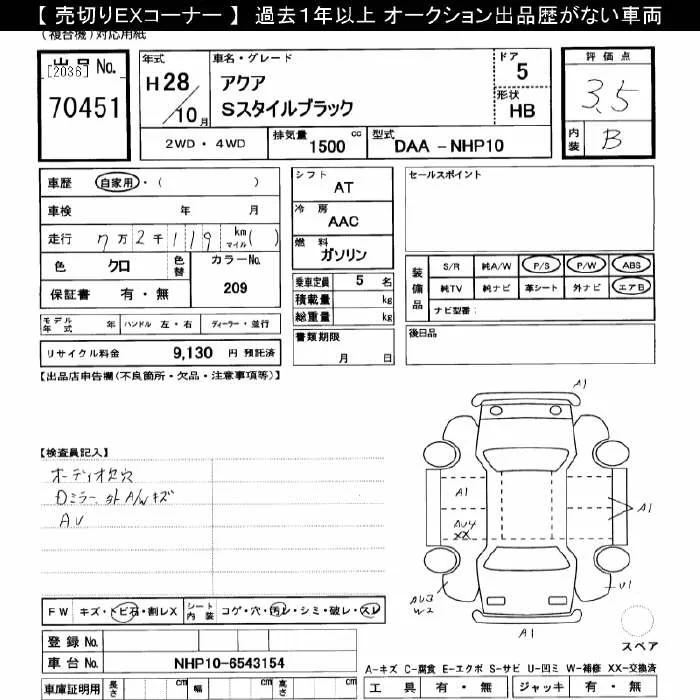 【 売切りEXコーナー 】 過去1年以上 オークション出品歴がない車両
(複合機)対応用紙
出品 No.
[2036]
70451
年式
H28
/10 月
車名・グレード
アクア
Sスタイルブラック
ドア
5
形状
HB
評価点
3.5
内装
B
2WD・4WD
排気量
1500 cc
型式
DAA - NHP10
車歴 自家用・( )
車検 年 月
走行 7万2千119 km マイル ( )
色 クロ
色替
カラーNo.
209
保証書 有・無
シフト
AT
冷房
AAC
燃料
ガソリン
乗車定員 5 名
積載量 kg
総重量 kg
セールスポイント
装備品
S/R 純A/W P/S P/W ABS
純TV 純ナビ 革シート 外ナビ エアB
ナビ型番:
モデル年式 年 ハンドル 左・右 ディーラー・並行
リサイクル料金 9,130 円 預託済
書類期限
月 日
後日品
【出品店申告欄(不良箇所・欠品・注意事項等)】
【検査員記入】
オーディオ欠穴
Dミラー外A/Wキズ
AU
A1
A1
A1
AU4
XX
AU3
W2
U1
A1
スペア
FW キズ・トビ石・割レX
シート内装 コゲ・穴・汚レ・シミ・破レ・スレ
登録 No.
車台 No. NHP10-6543154
車庫証明用 長さ cm 幅 cm 高さ cm
A-キズ C-腐食 E-エクボ S-サビ U-凹ミ W-補修 XX-交換済
工具 有・無 ジャッキ 有・無